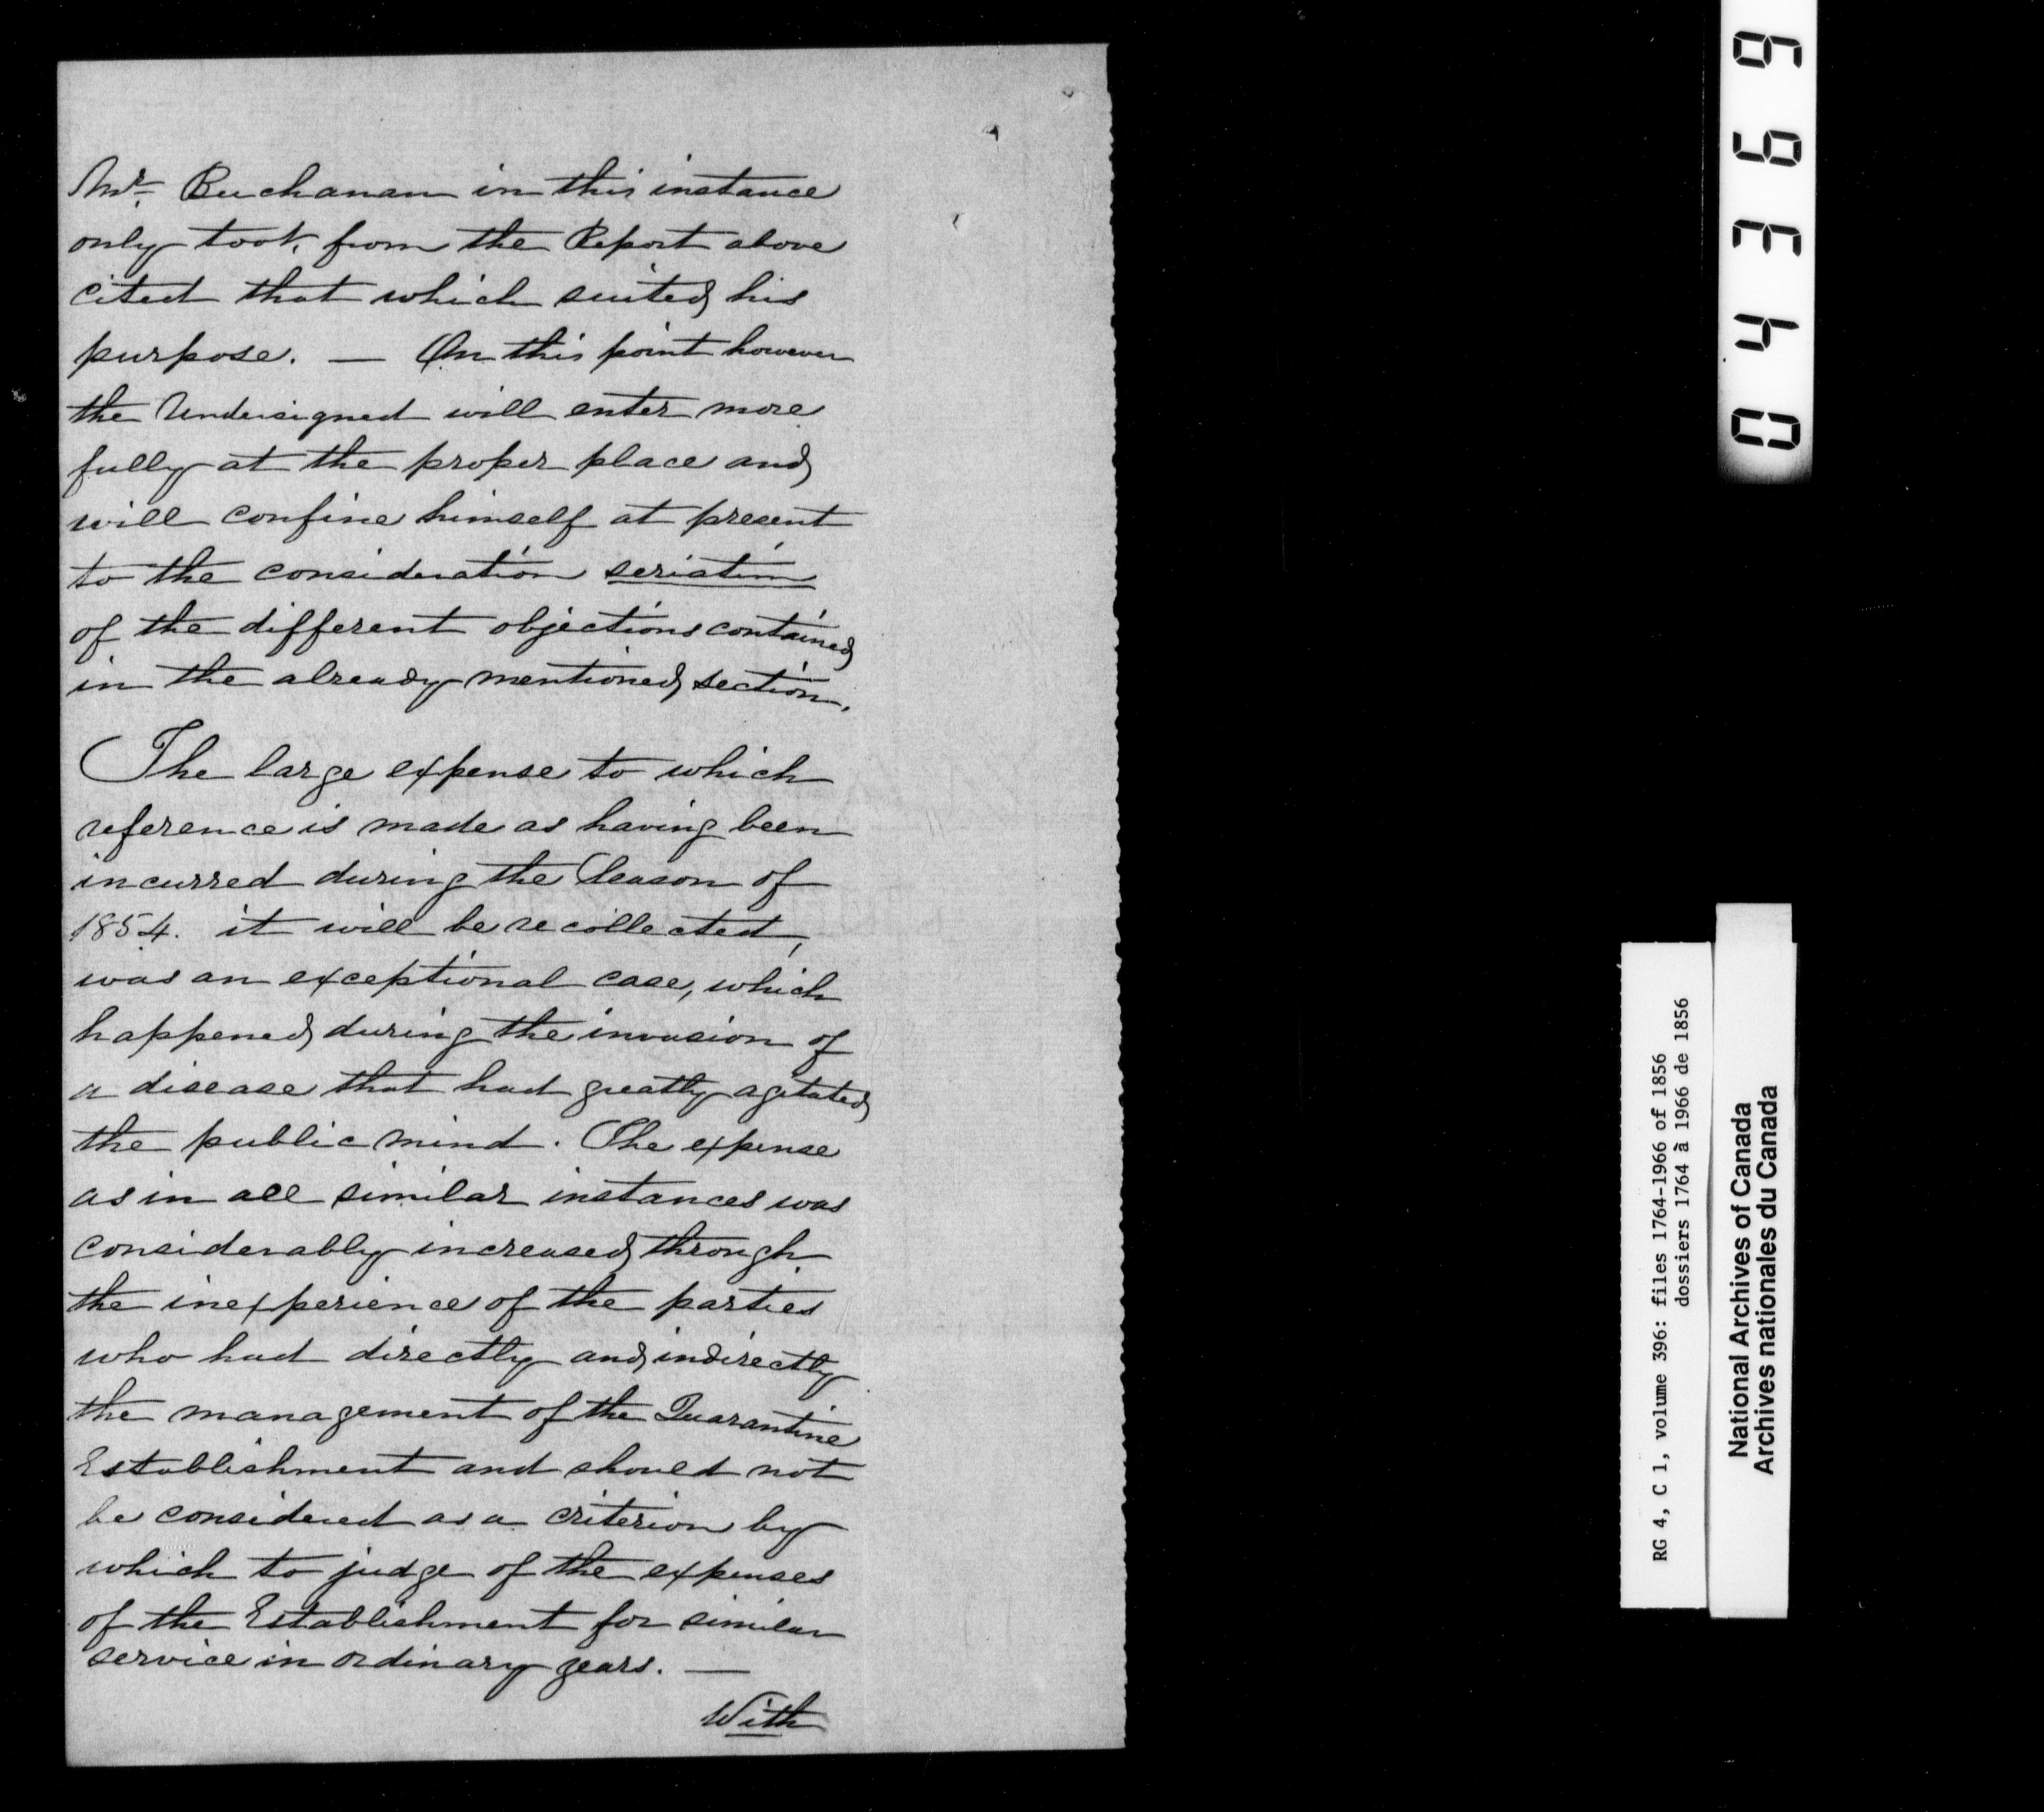 Mr. Buchanan in this instance
only took from the Report above
cited that which suited his
purpose. — On this point however
the Undersigned will enter more
fully at the proper place and
will confine himself at present
to the consideration seriatim
of the different objections contained
in the already mentioned section.
The large expense to which
reference is made as having been
incurred during the Season of
1854. it will be recollected,
was an exceptional case, which
happened during the invasion of
a disease that had greatly agitated
the public mind. The expense
as in all similar instances was
considerably increased through
the inexperience of the parties
who had directly and indirectly
the management of the Quarantine
Establishment and should not
be considered as a criterion by
which to judge of the expenses
of the Establishment for similar
service in ordinary years. —
With
04369
RG 4, C 1, volume 396: files 1764-1966 of 1856
dossiers 1764 à 1966 de 1856
National Archives of Canada
Archives nationales du Canada